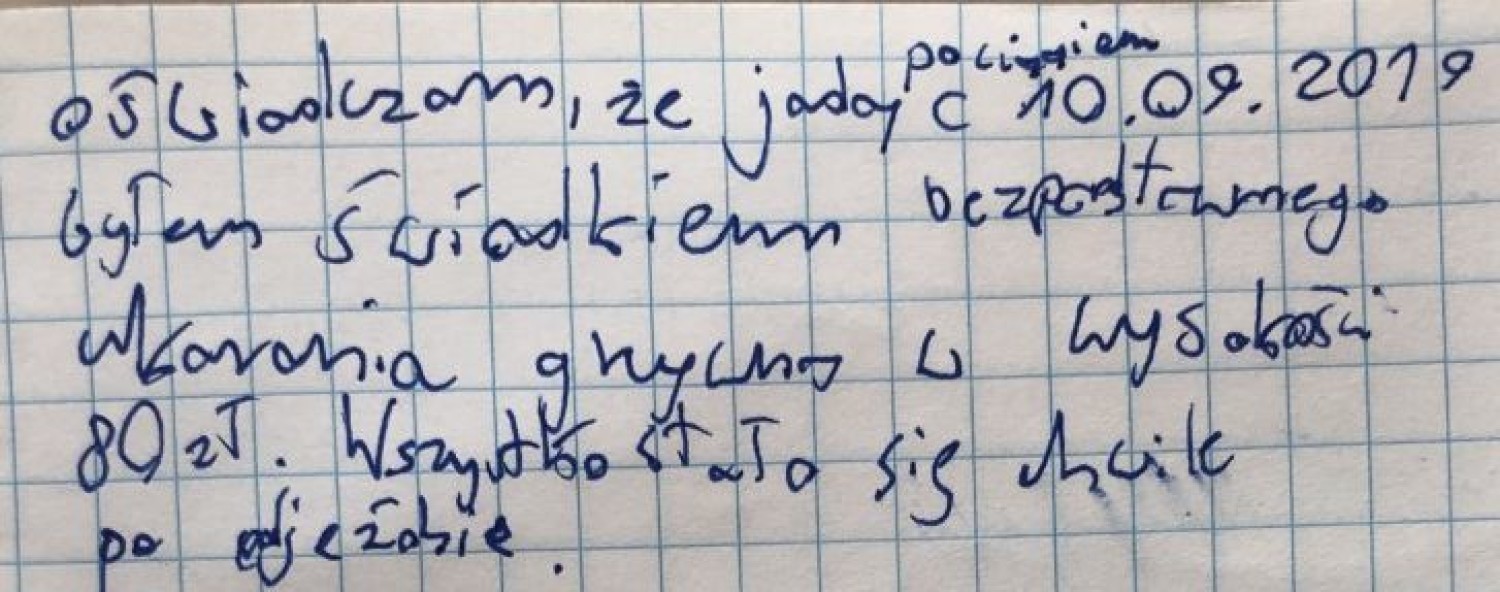 oświadczam, że jadąc pociągiem 10.09.2019
byłem świadkiem bezpodstawnego
ukarania grzywną w wysokości
80 zł. Wszystko stało się chwile
po odjeździe.